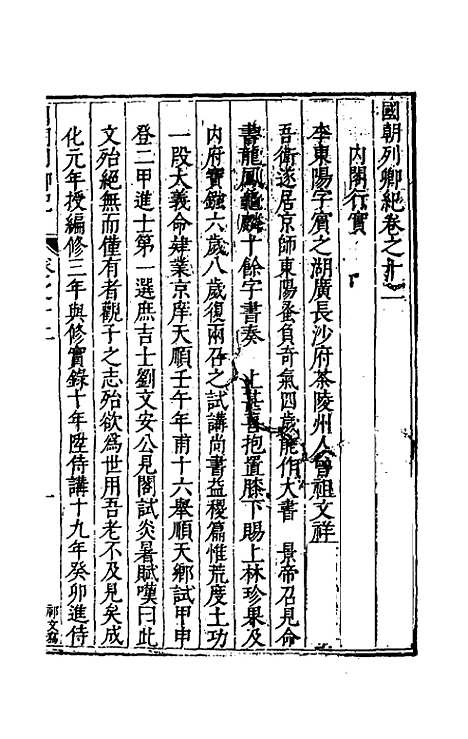 國朝列卿紀卷之十一
內閣行實
李東陽字賓之湖廣長沙府茶陵州人曾祖文祥
吾衛遂居京師東陽蚤負奇氣四歲能作大書 景帝召見命
書龍鳳龜麟十餘字書奏 上甚喜抱置膝下賜上林珍果及
內府寶鏹六歲八歲復兩召之試講尚書益稷篇惟荒度土功
一段大義命肄業京庠天順壬午年甫十六舉順天鄉試甲申
登二甲進士第一選庶吉士劉文安公見閣試炎暑賦嘆曰此
文殆絕無而僅有者觀子之志殆欲爲世用吾老不及見矣成
化元年授編修三年與修實錄十年陞侍講十九年癸卯進侍
卷之十一
一
祁文寫